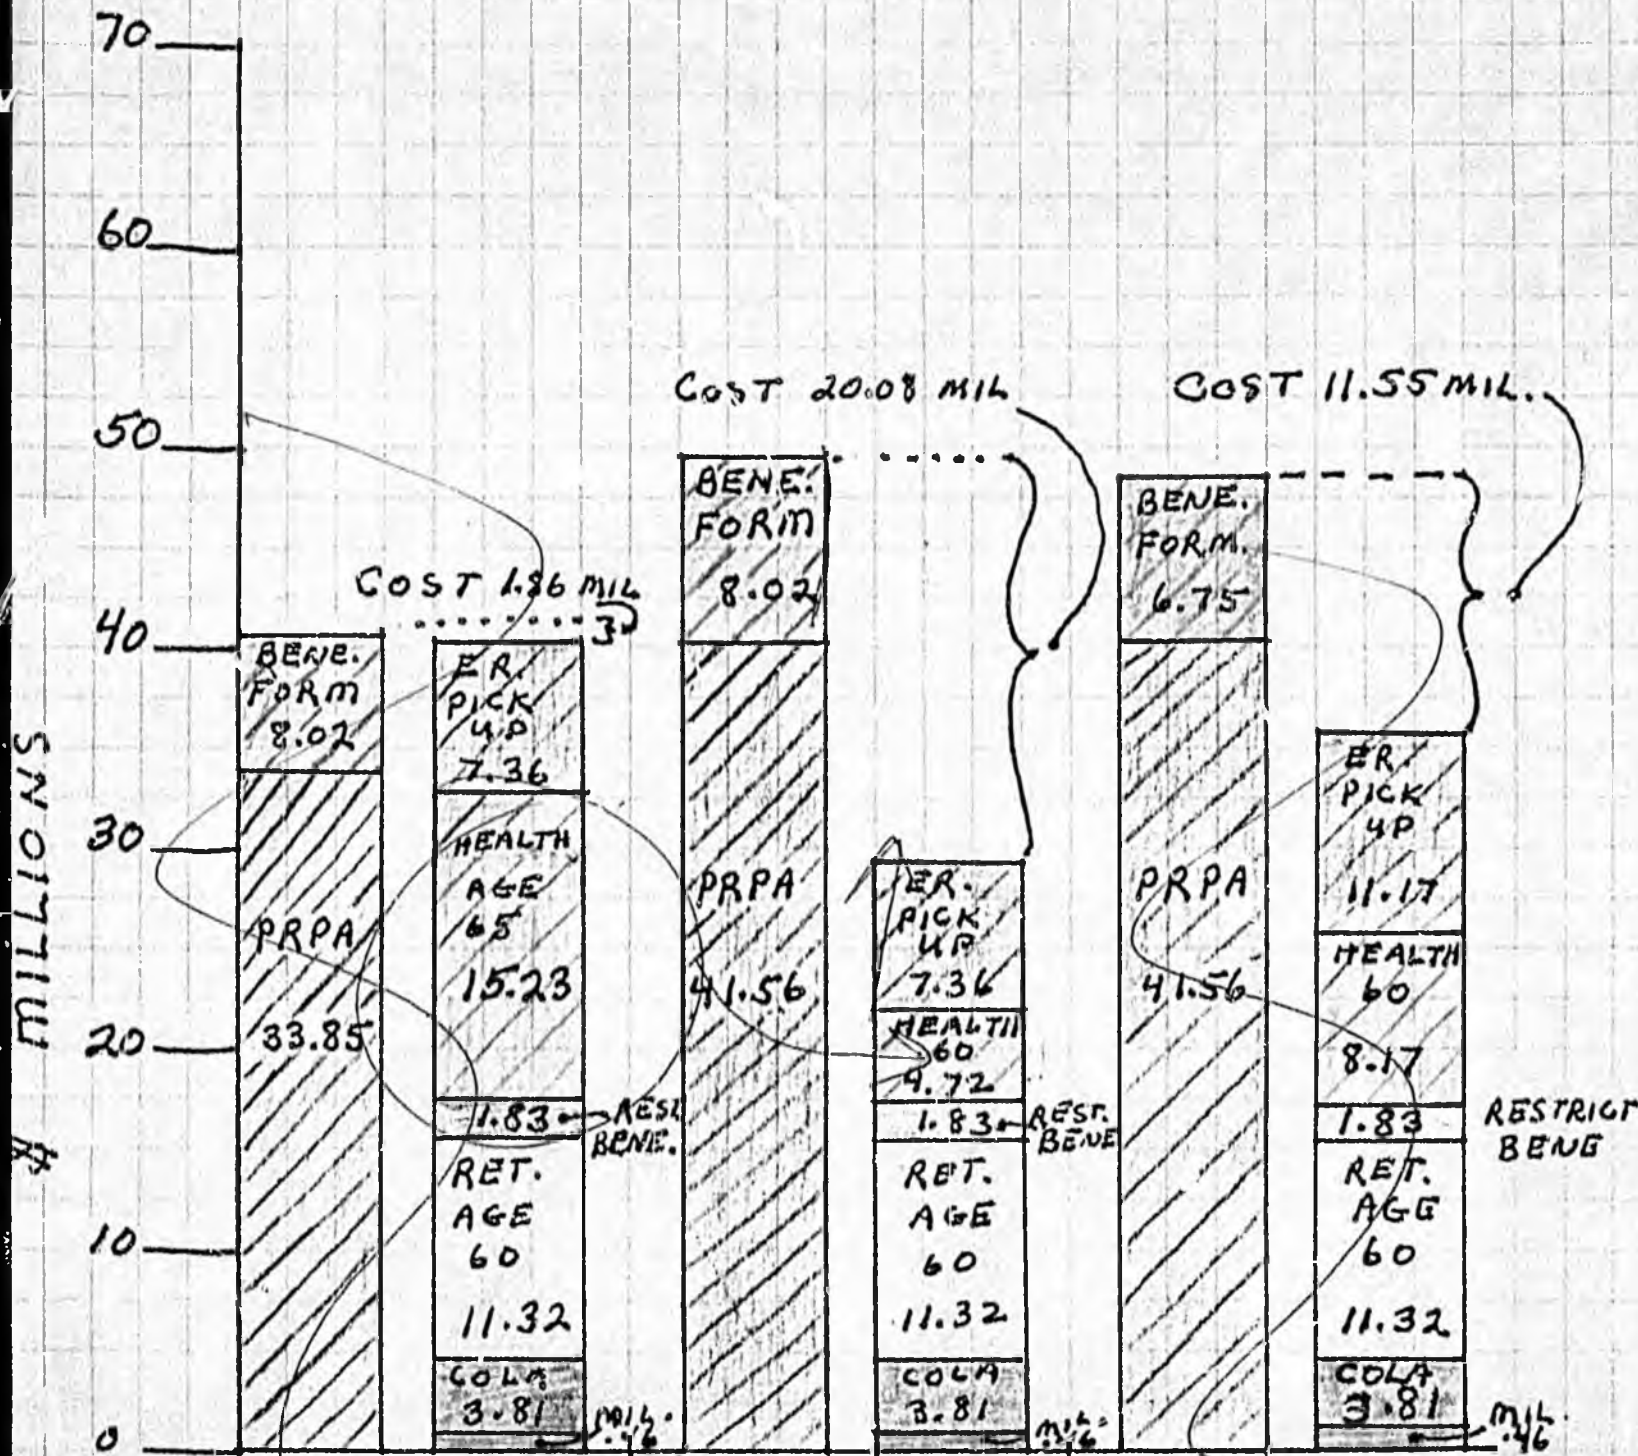 70
60
50
40
30
20
10
0
$ MILLIONS
COST 1.86 MIL
BENE.
FORM
8.02
PRPA
33.85
ER.
PICK
UP
7.36
HEALTH
AGE
65
15.23
1.83
BENE.
RET.
AGE
60
11.32
COLA
3.81
MIL.
.46
COST 20.08 MIL
BENE.
FORM
8.02
PRPA
41.56
ER.
PICK
UP
7.36
HEALTH
60
4.72
1.83
REST.
BENE
RET.
AGE
60
11.32
COLA
3.81
MIL.
.46
COST 11.55 MIL.
BENE.
FORM.
6.75
PRPA
41.56
ER.
PICK
UP
11.17
HEALTH
60
8.17
1.83
RESTRICT
BENE
RET.
AGE
60
11.32
COLA
3.81
MIL.
.46